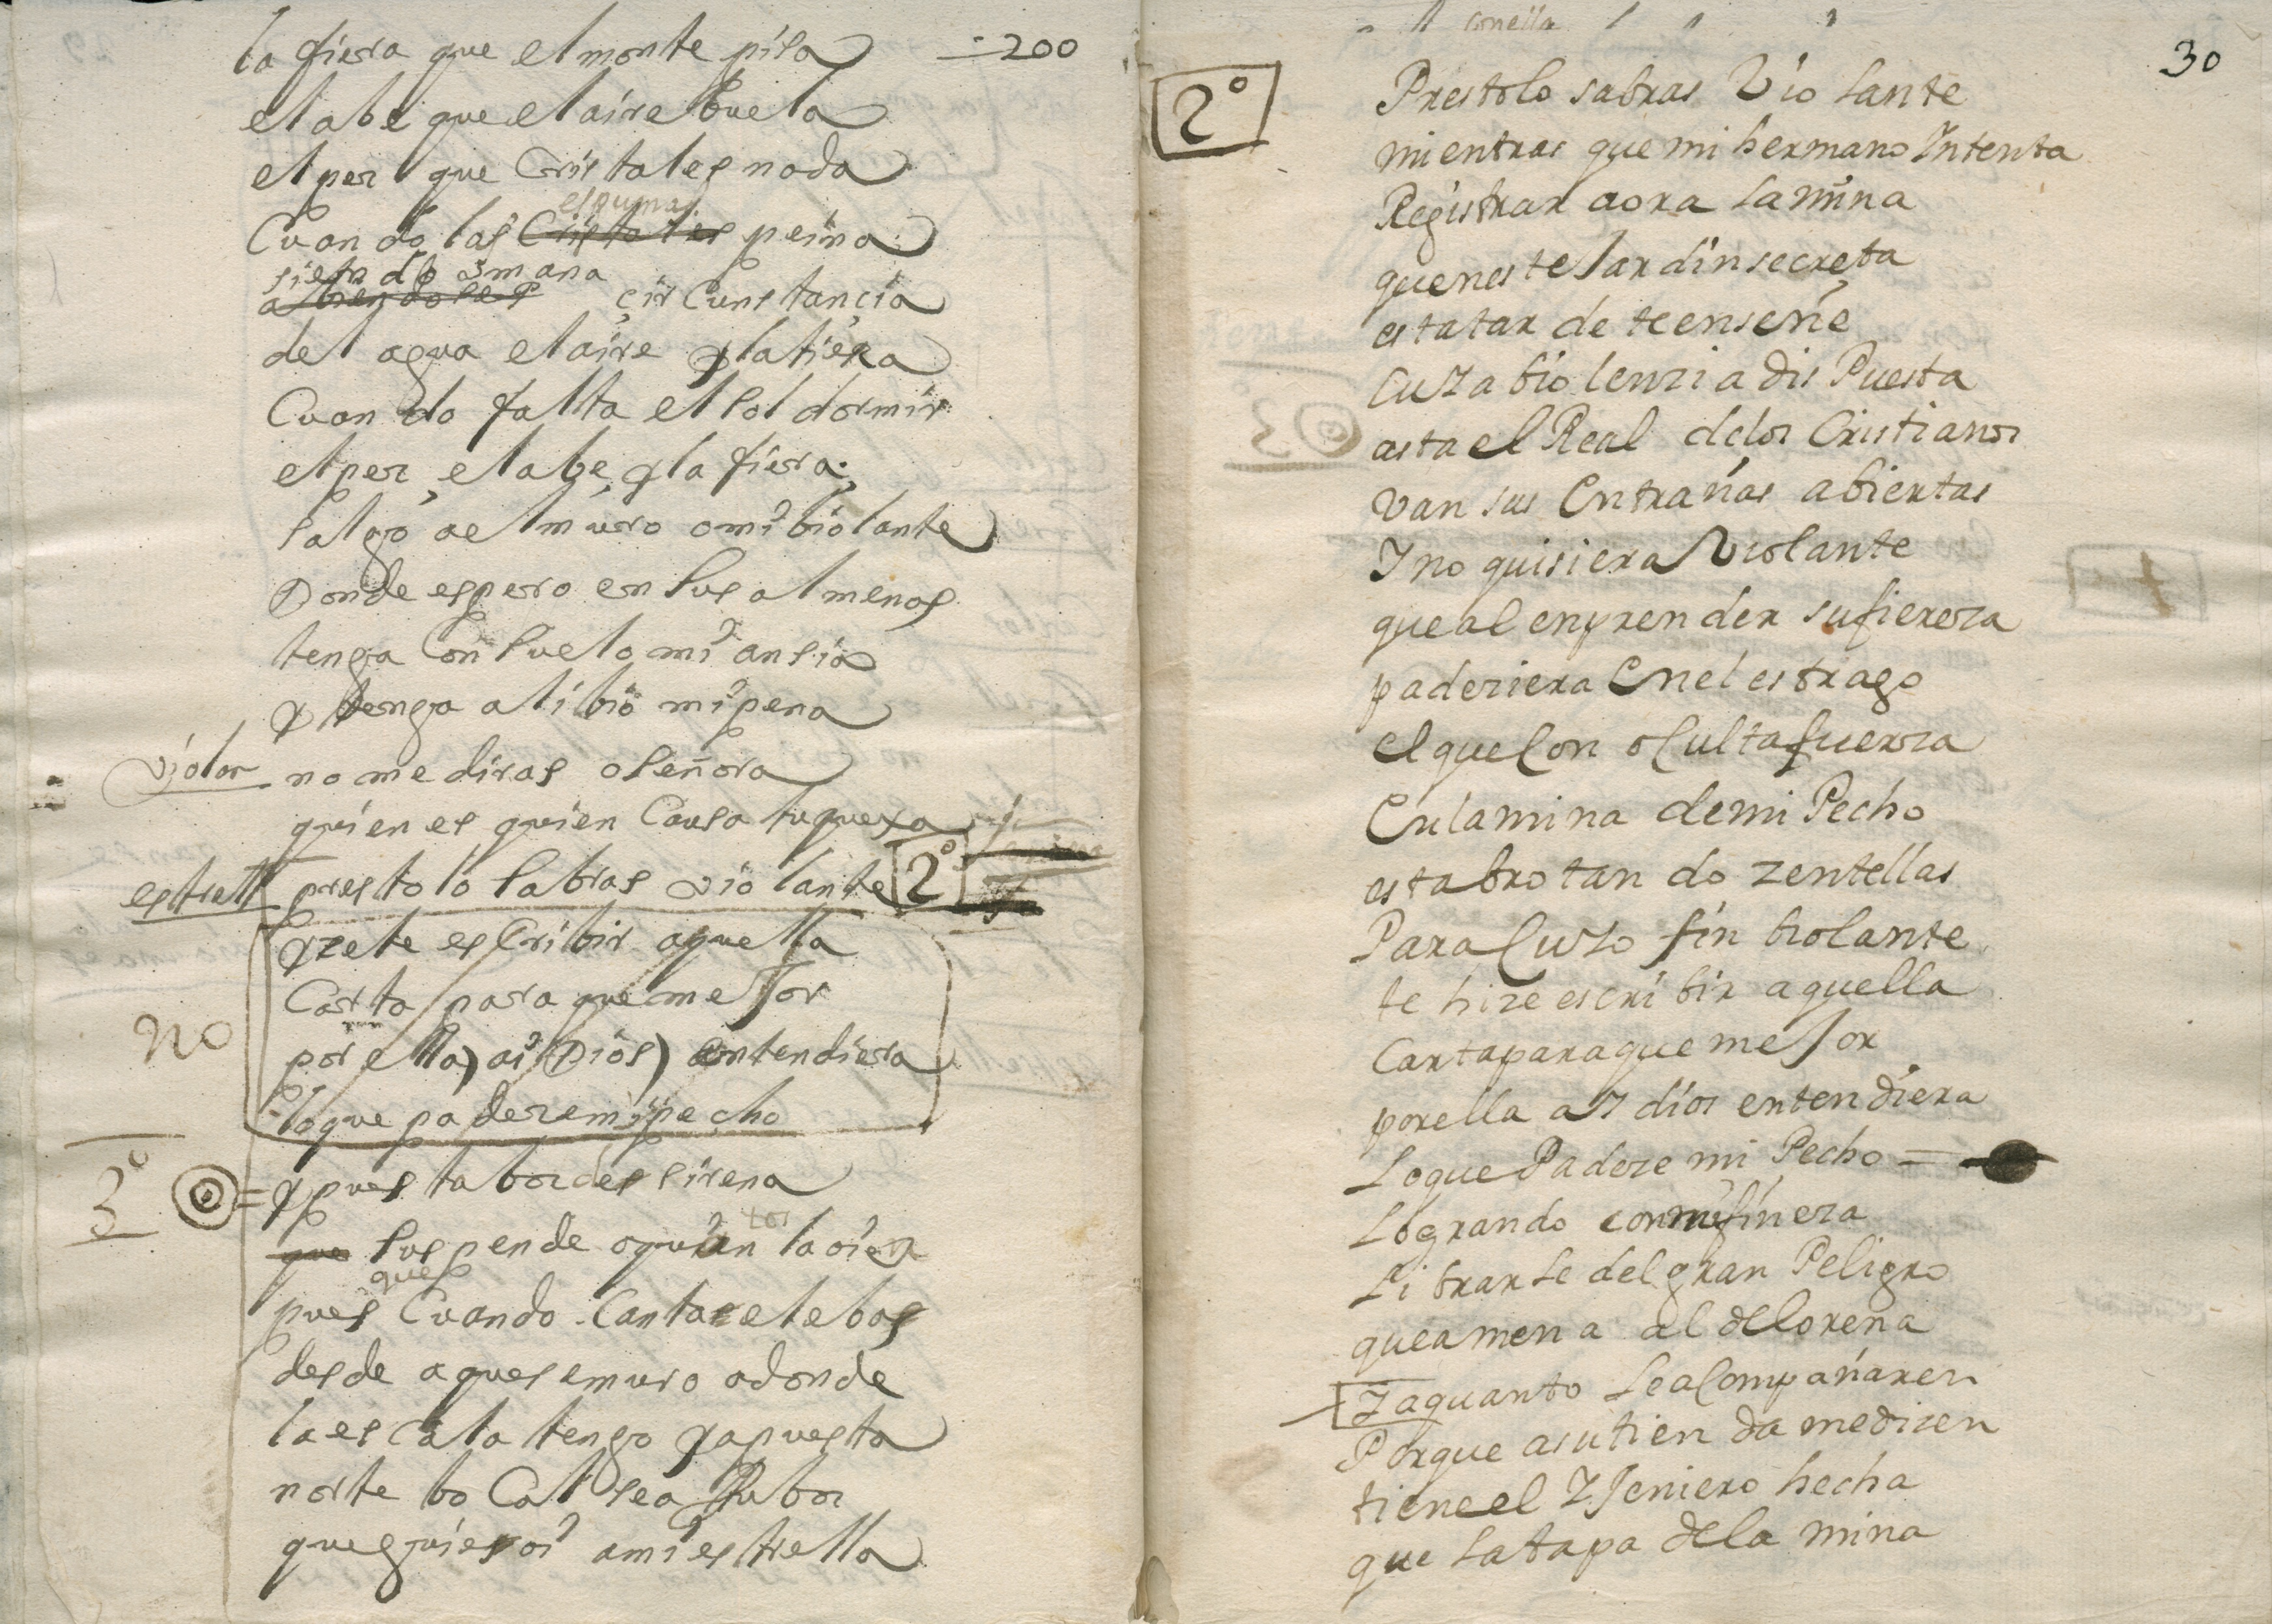 la fiera que el monte pisa -200
el abe que el aire buela
el pez que Cristales nada
espumas
Cuando las Cristales peina
siendo umana
abrendoles çircunstançia
del agua el aire y la tiera
Cuando falta el sol dormir
el pez, el abe, y la fiera.
salgo a el muro o mi biolante
Donde espero en sus almenas
tenga Consuelo mi ansia
y tenga alibio mi pena
violan no me diras o señora
quien es quien Causa tu quexa
estrell presto lo sabras violante 2º
yzete esCribir aquella
Carta para que mejor
no por ella) ai Dios) entendiera
lo que padeze mi pecho
3º = y pues tu boz des sirena
tos
que suspende a quien la oiera
que
pues Cuando Canta elebas
desde aquese muro adonde
la esCala tengo ya puesta
norte boCal sea tu boz
que guie oi a mi estrella
conella
30
2º
Prestolo sabras Violante
mientras que mi hermano Intenta
Registrar aora la mina
queneste Jardin secreta
esta tarde te enseñe
Cuza biolenzia dis Puesta
asta el Real delos Cristianos
van sus Entrañas abiertas
I no quisiera Violante
que al enprender su fiereza
padeziera Enel estrago
el que Con oCulta fuerza
Enla mina demi Pecho
esta brotando zentellas
Para Cuzo fin biolante
te hize escribir aquella
Carta para que meJor
porella aI dios entendiera
Loque Padeze mi Pecho =
Logrando con mi fineza
Librarle del gran Peligro
que amena al de lorena
I aquanto LeaCompañaren
Porque asu tienda medizen
tiene el IJeniero hecha
que la tapa dela mina